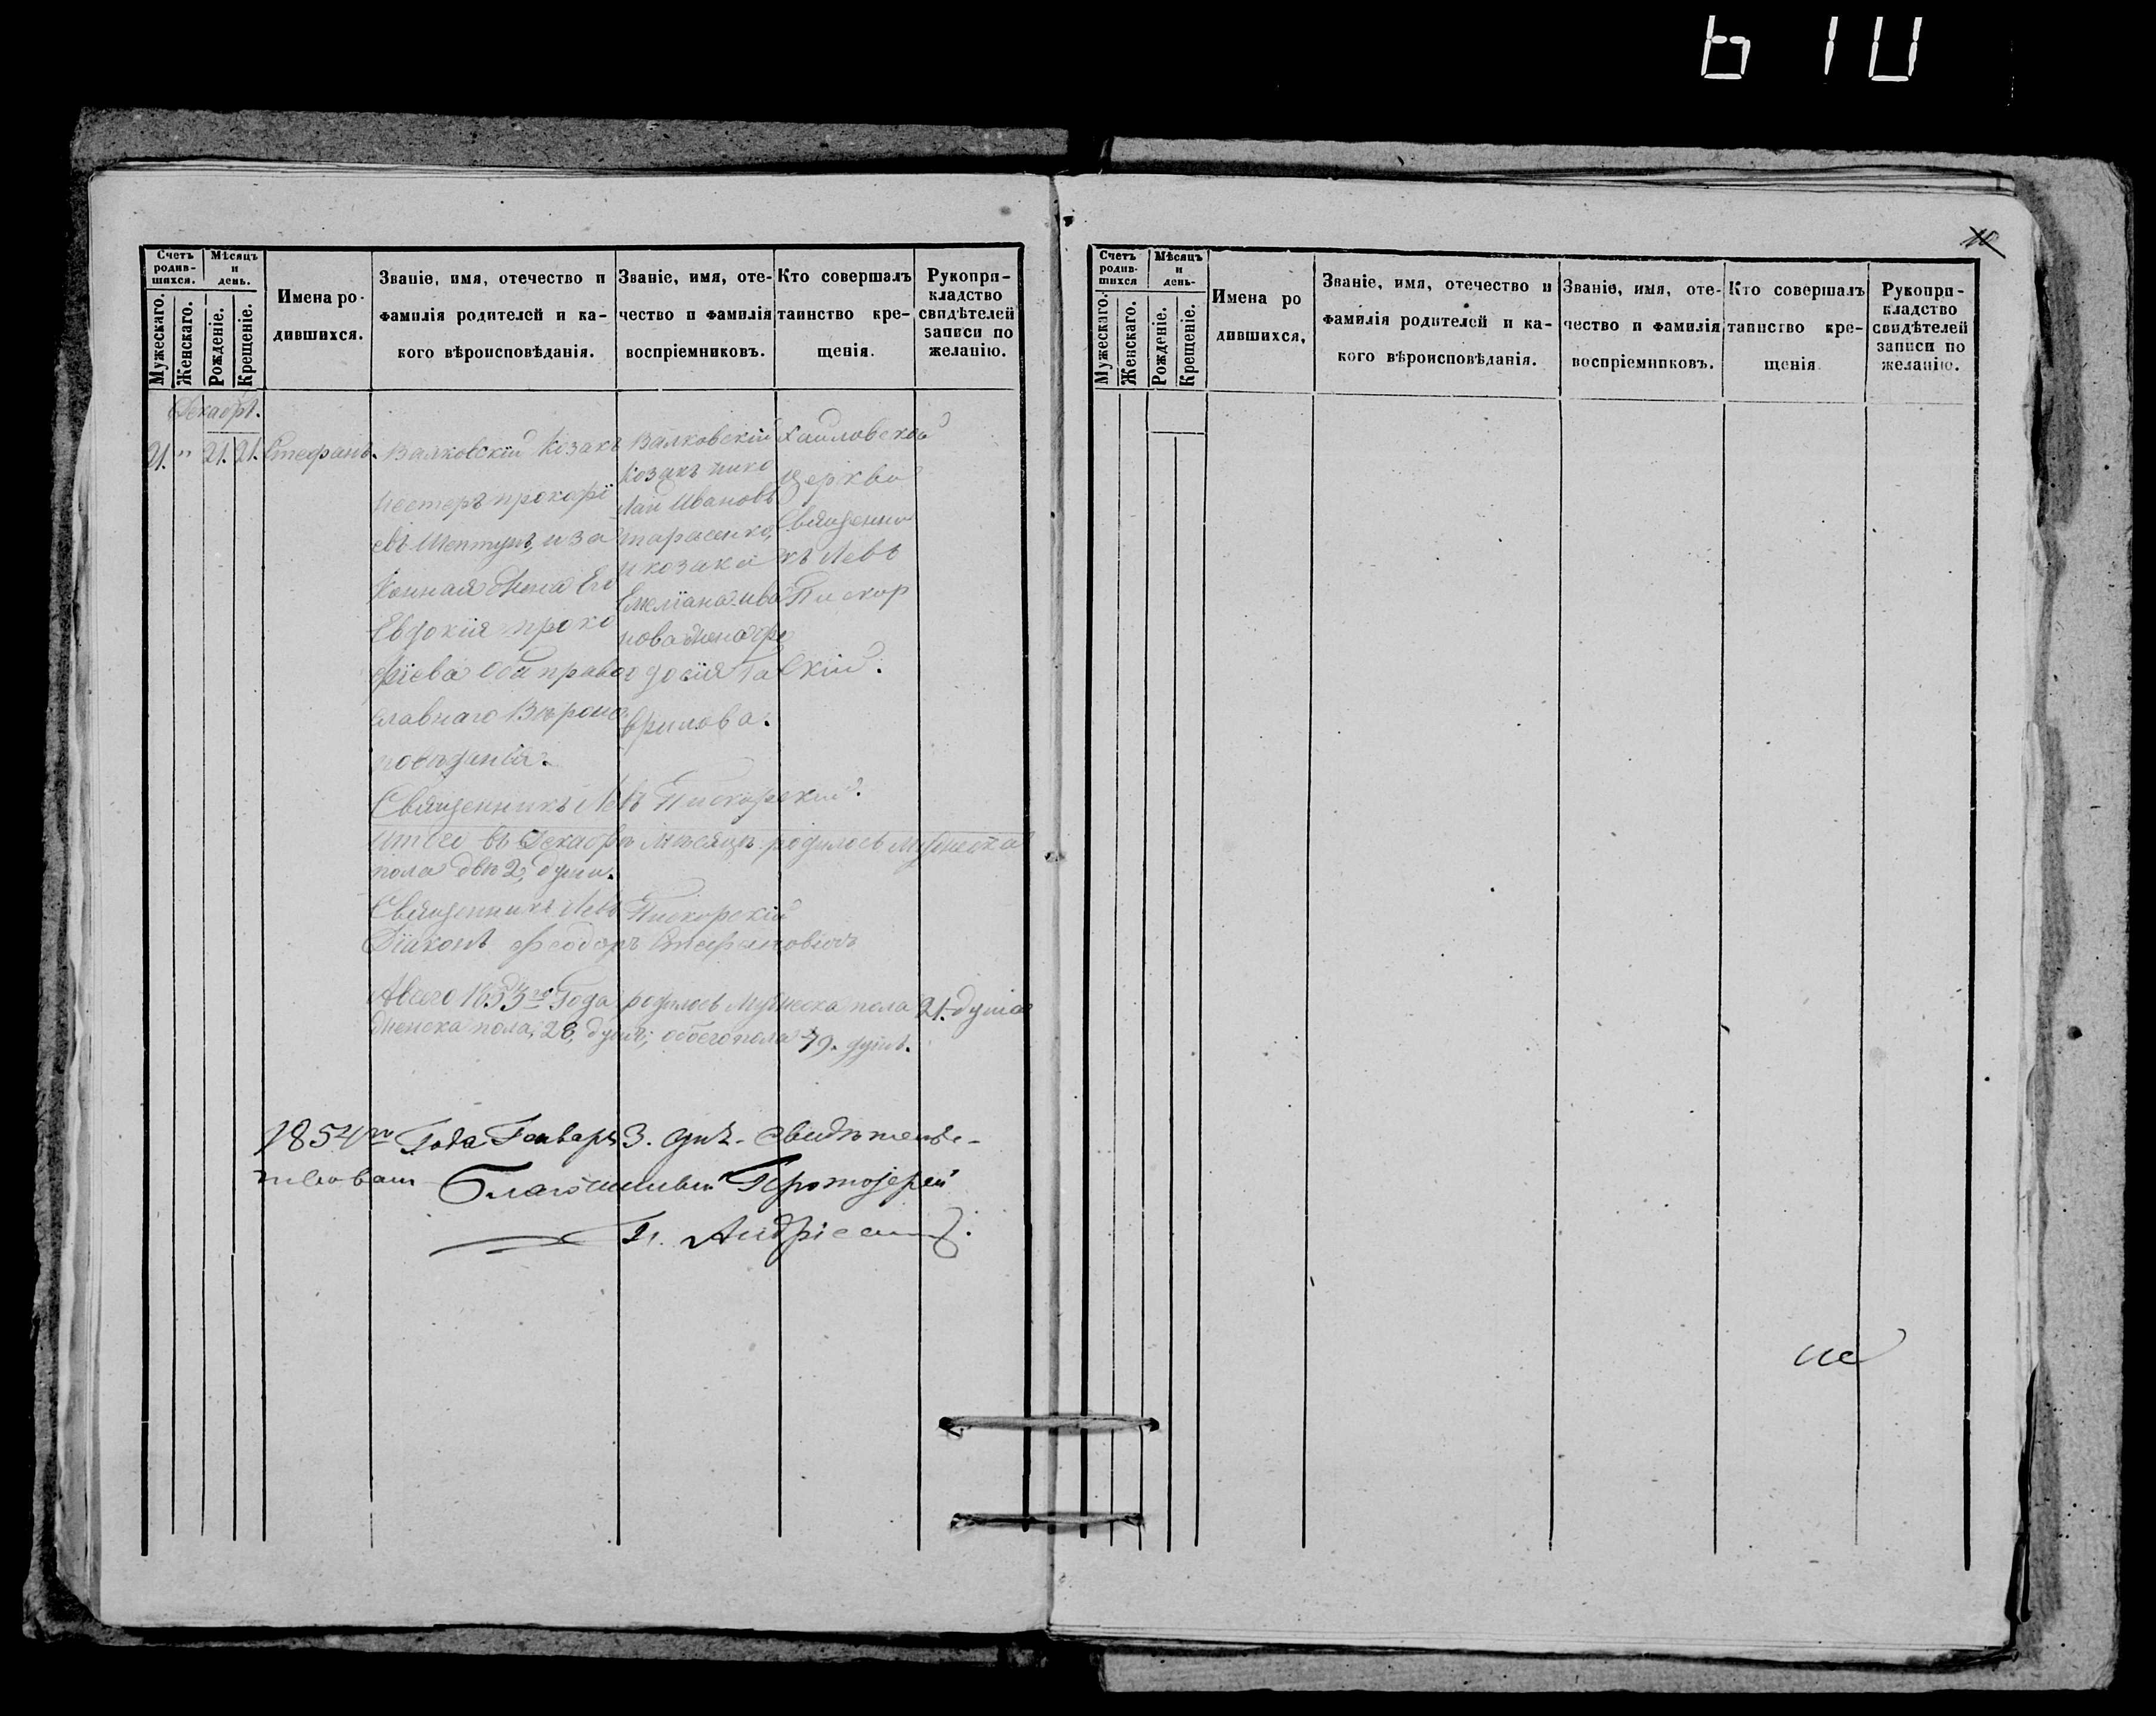 610
Счетъ родив-шихся.
Мѣсяцъ и день.
Мужескаго.
Женскаго.
Рожденіе.
Крещеніе.
Имена ро-
дившихся.
Званіе, имя, отечество и
фамилія родителей и ка-
кого вѣроисповѣданія.
Званіе, имя, оте-
чество и фамилія
воспріемниковъ.
Кто совершалъ
таинство кре-
щенія.
Рукопри-
кладство
свидѣтелей
записи по
желанію.
Декабрь.
21. " 21. 21. Стефанъ.
Валковскій Козакъ
Нестеръ прокофі
евъ Шептунъ, и за
конная Жена Его
Евдокія проко
фіева Оба право
славнаго Вѣроис
повѣданія.
Валковскій
Козакъ нико
лай Ивановъ
тарасенко,
и козака
Емеліана ива
нова жена фе
одосія Га
врилова.
хайловской
Церкви
Священни
къ Левъ
Пискор
скій.
Священникъ Левъ Пискорскій.
Итого въ Декабрѣ мѣсяцѣ родилось мужеска
пола двѣ 2, души.
Священникъ Левъ Пискорскій
Діаконъ Феодоръ Стефановичъ
Авсего 1853го Года родилось Мужеска пола 21. душа
Женска пола, 28, душъ, обоего пола 49. душъ.
1854го Года Генваря 3. дня. Свидѣтельс-
твовалъ Благочинный Протоіерей
10
Счетъ родив-шихся
Мѣсяцъ и день-
Мужескаго.
Женскаго.
Рожденіе.
Крещеніе.
Имена ро
дившихся,
Званіе, имя, отечество и
фамилія родителей и ка-
кого вѣроисповѣданія.
Званіе, имя, оте-
чество и фамилія
воспріемниковъ.
Кто совершалъ
таинство кре-
щенія
Рукопри-
кладство
свидѣтелей
записи по
желанію.